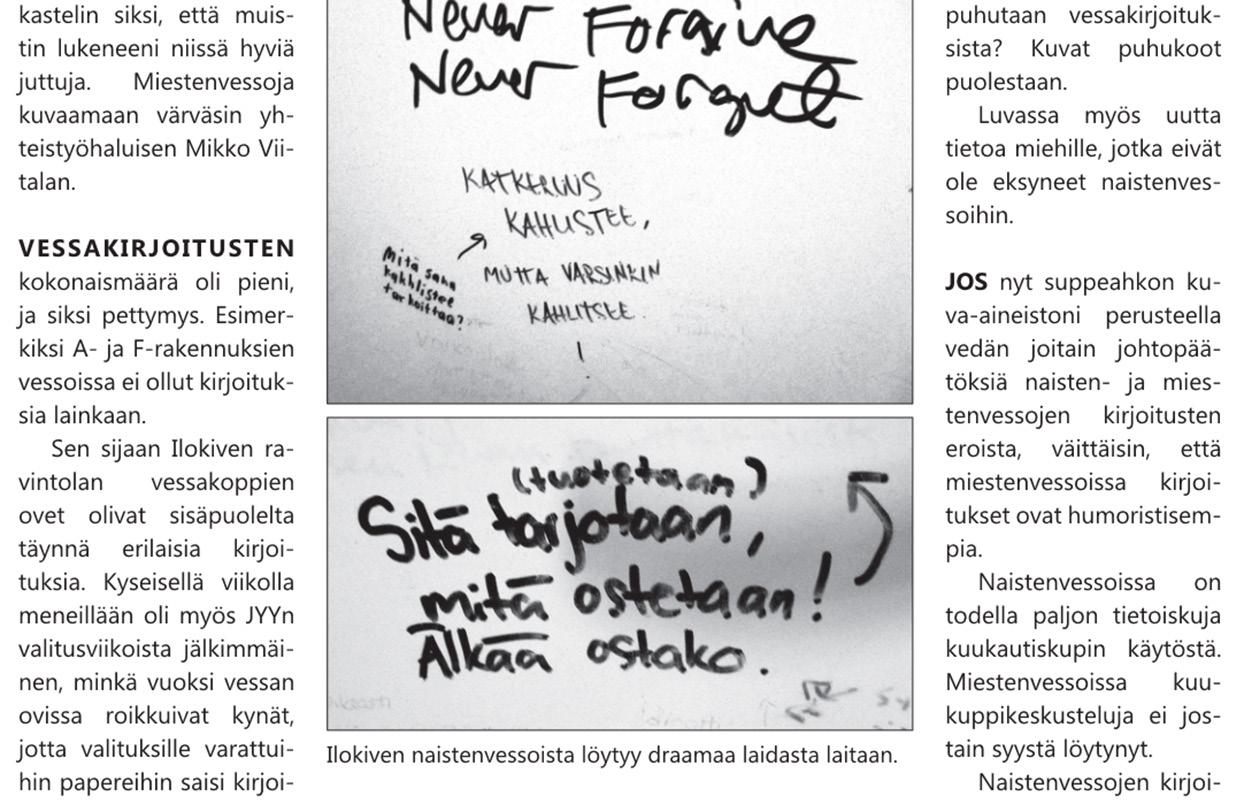 kastelin siksi, että muis-
tin lukeneeni niissä hyviä
juttuja. Miestenvessoja
kuvaamaan värväsin yh-
teistyöhaluisen Mikko Vii-
talan.
VESSAKIRJOITUSTEN
kokonaismäärä oli pieni,
ja siksi pettymys. Esimer-
kiksi A- ja F-rakennuksien
vessoissa ei ollut kirjoituk-
sia lainkaan.
Sen sijaan Ilokiven ra-
vintolan vessakoppien
ovet olivat sisäpuolelta
täynnä erilaisia kirjoi-
tuksia. Kyseisellä viikolla
meneillään oli myös JYYn
valitusviikoista jälkimmäi-
nen, minkä vuoksi vessan
ovissa roikkuivat kynät,
jotta valituksille varattui-
hin papereihin saisi kirjoi-
Never Forgive
Never Forget
KATKERUUS
KAHLISTEE,
Mitä sana
kahlistee
tarkoittaa?
MUTTA VARSINKIN
KAHLITSEE.
!
(tuotetaan)
Sitä tarjotaan,
mitä ostetaan!
Älkää ostako.
Ilokiven naistenvessoista löytyy draamaa laidasta laitaan.
puhutaan vessakirjoituk-
sista? Kuvat puhukoot
puolestaan.
Luvassa myös uutta
tietoa miehille, jotka eivät
ole eksyneet naistenves-
soihin.
JOS nyt suppeahkon ku-
va-aineistoni perusteella
vedän joitain johtopää-
töksiä naisten- ja mies-
tenvessojen kirjoitusten
eroista, väittäisin, että
miestenvessoissa kirjoi-
tukset ovat humoristisem-
pia.
Naistenvessoissa on
todella paljon tietoiskuja
kuukautiskupin käytöstä.
Miestenvessoissa kuu-
kuppikeskusteluja ei jos-
tain syystä löytynyt.
Naistenvessojen kirjoi-